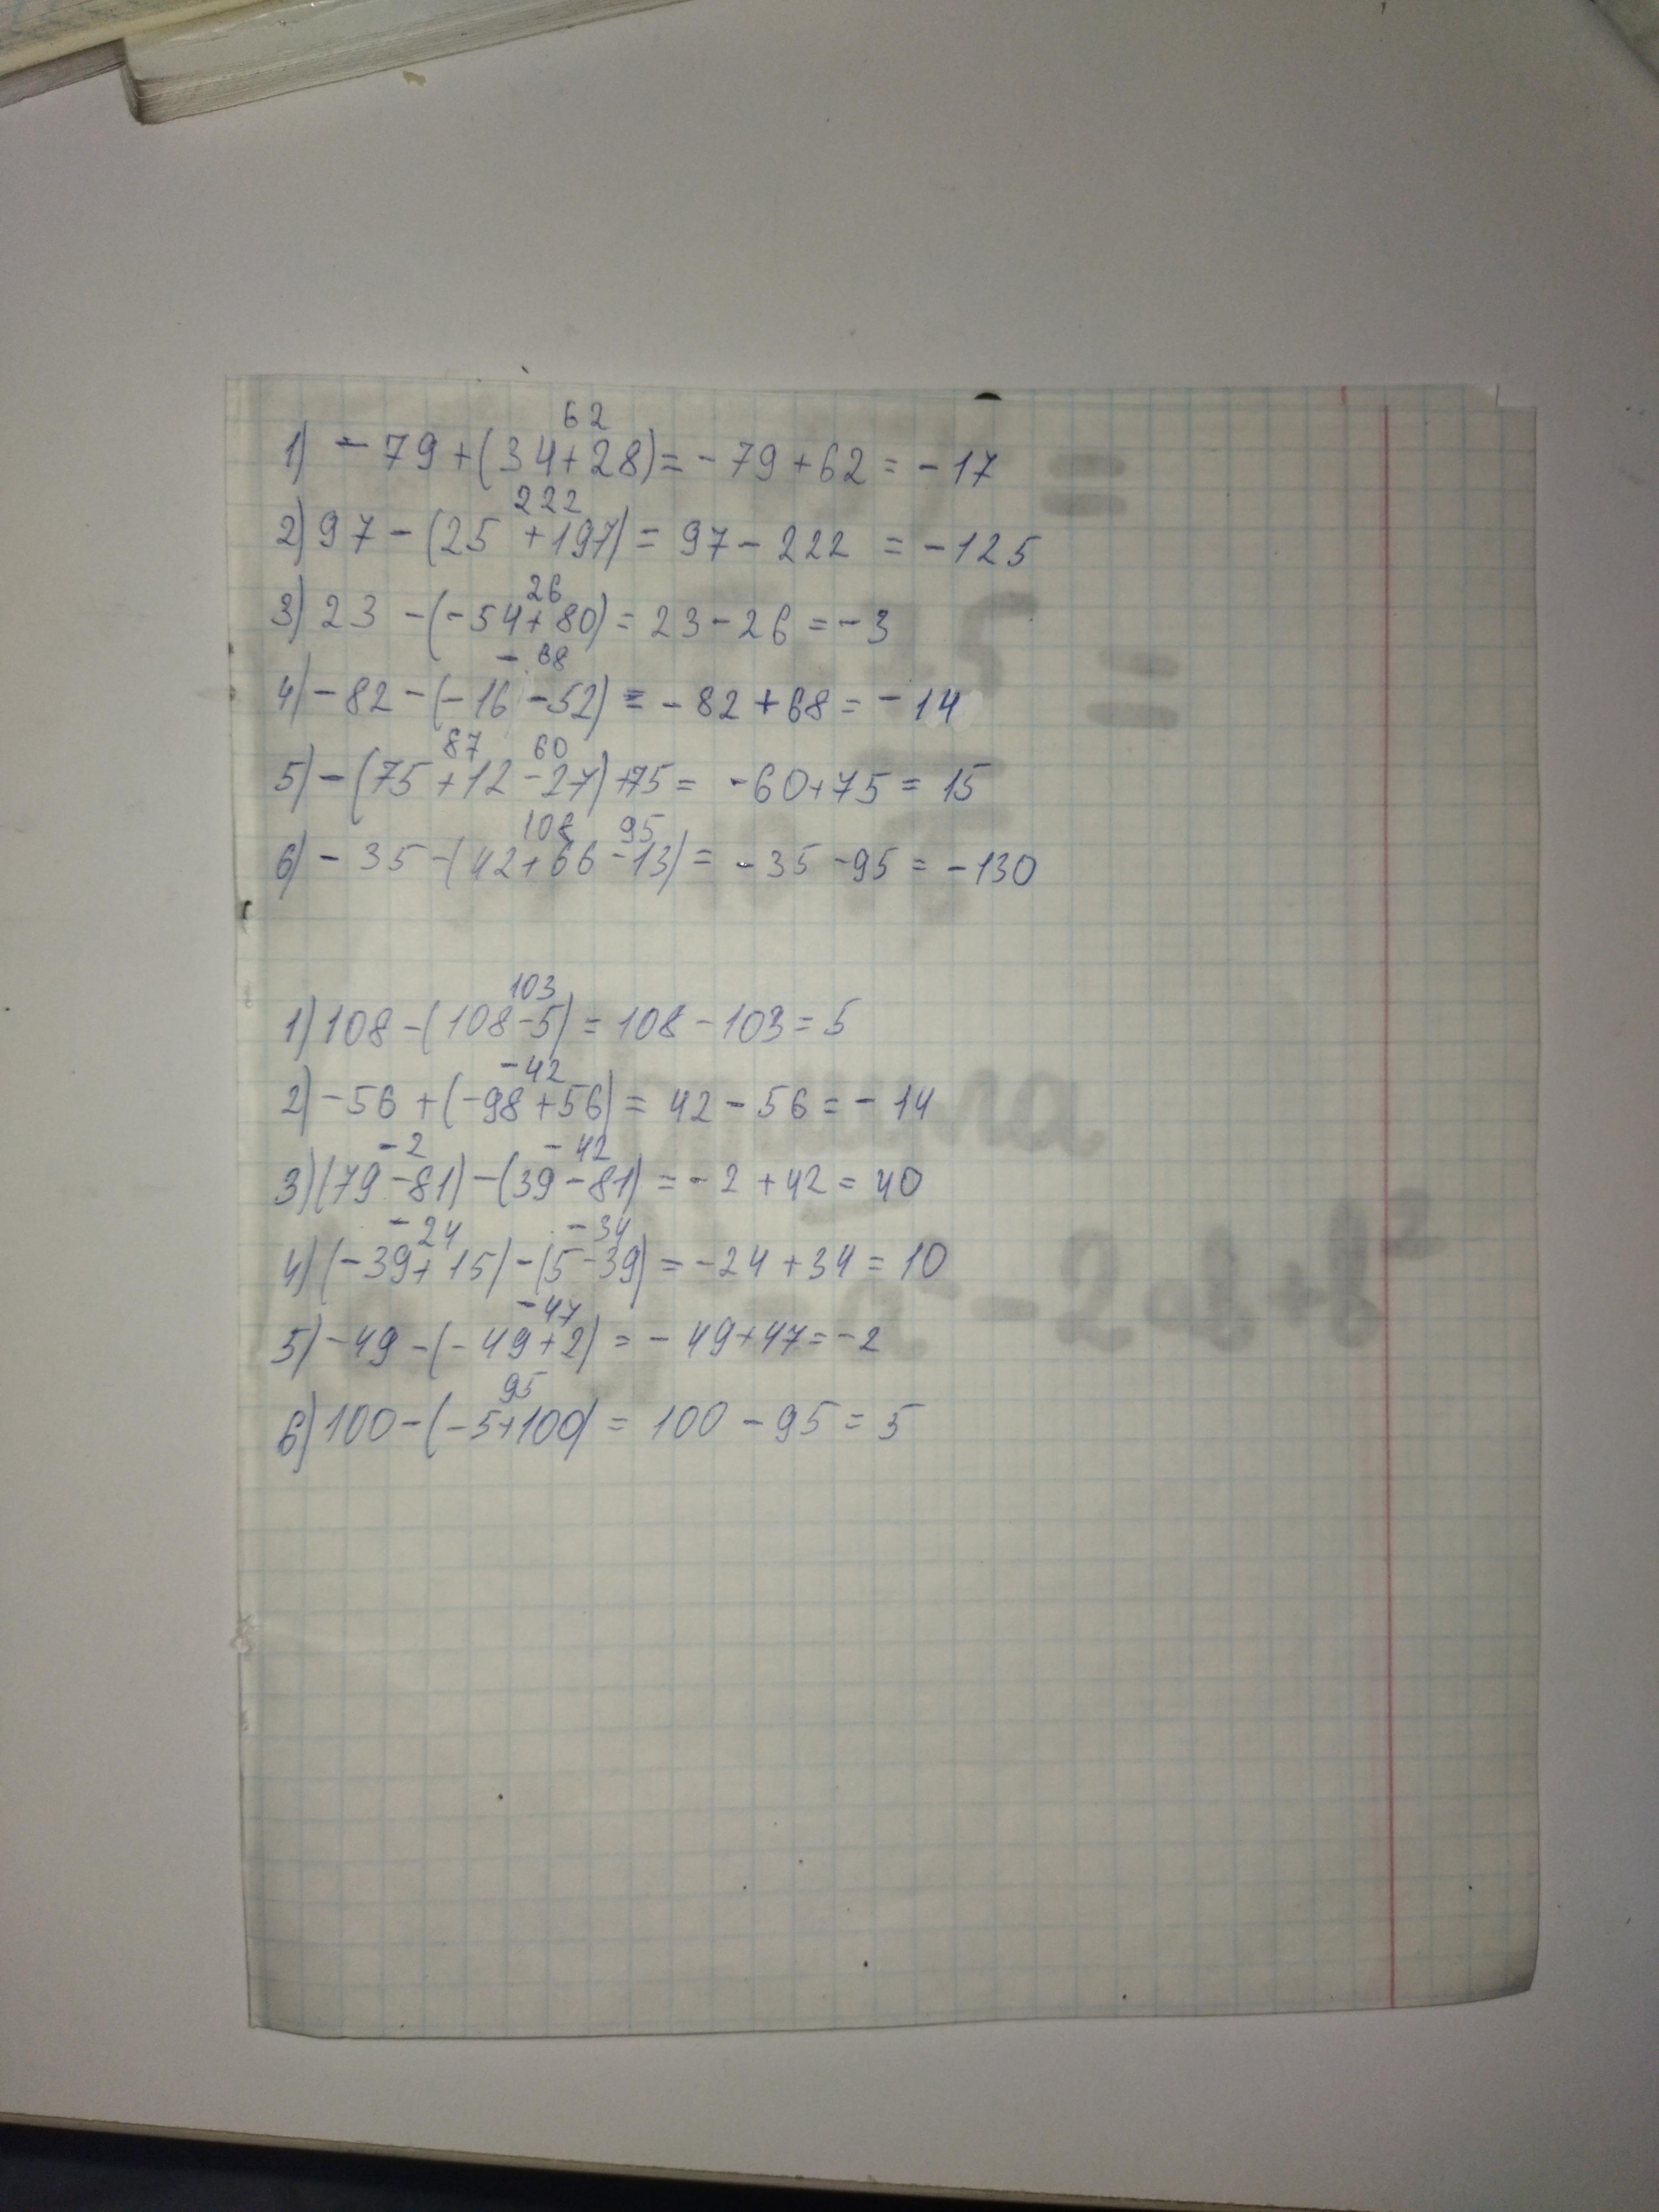 62
1) - 79 + (34 + 28) = - 79 + 62 = - 17
222
2) 97 - (25 + 197) = 97 - 222 = - 125
26
3) 23 - (- 54 + 80) = 23 - 26 = - 3
- 68
4) - 82 - (- 16 - 52) = - 82 + 68 = - 14
87 60
5) - (75 + 12 - 27) + 75 = - 60 + 75 = 15
108 95
6) - 35 - (42 + 66 - 13) = - 35 - 95 = - 130
103
1) 108 - (108 - 5) = 108 - 103 = 5
- 42
2) - 56 + (- 98 + 56) = 42 - 56 = - 14
- 2 - 42
3) (79 - 81) - (39 - 81) = - 2 + 42 = 40
- 24 - 34
4) (- 39 + 15) - (5 - 39) = - 24 + 34 = 10
- 47
5) - 49 - (- 49 + 2) = - 49 + 47 = - 2
95
6) 100 - (- 5 + 100) = 100 - 95 = 5